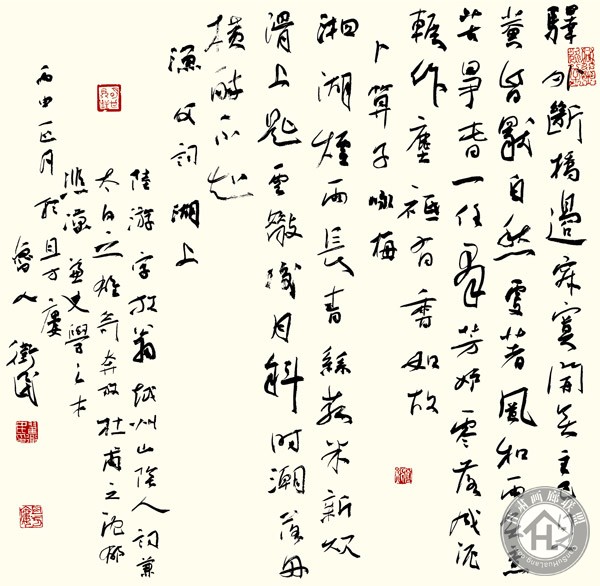 驛外斷橋邊寂寞開無主已是
黃昏獨自愁更著風和雨無意
苦爭春一任群芳妒零落成泥
輾作塵祗有香如故
卜算子咏梅
湘湖煙雨長蓴絲菰米新炊
滑上匙雲散後月斜時潮落舟
橫醉不知
漁父詞 湖上
陸游字放翁越州山陰人詞兼
太白之雄奇奔放杜甫之沉鬱
兼史學之才
丙申正月於
魯人衛民